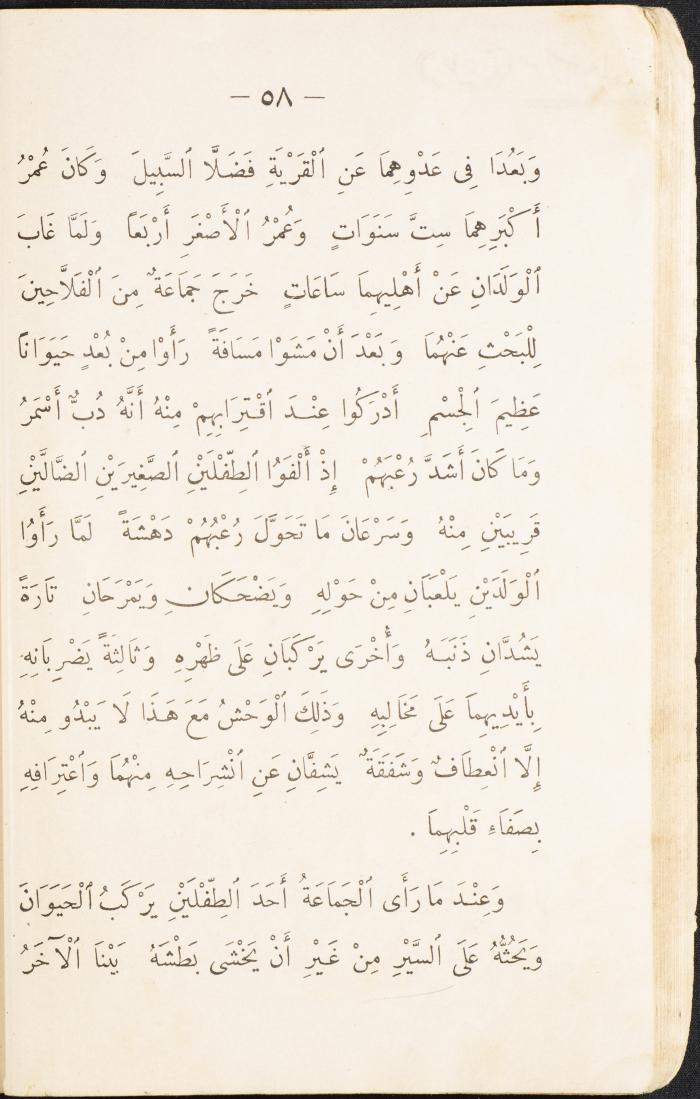 — ٥٨ —
وَبَعُدَا فِى عَدْوِهِمَا عَنِ ٱلْقَرْيَةِ فَضَلَّا ٱلسَّبِيلَ وَكَانَ عُمْرُ
أَكْبَرِهِمَا سِتَّ سَنَوَاتٍ وَعُمْرُ ٱلْأَصْغَرِ أَرْبَعًا وَلَمَّا غَابَ
ٱلْوَلَدَانِ عَنْ أَهْلِيهِمَا سَاعَاتٍ خَرَجَ جَمَاعَةٌ مِنَ ٱلْفَلَّاحِينَ
لِلْبَحْثِ عَنْهُمَا وَبَعْدَ أَنْ مَشَوْا مَسَافَةً رَأَوْا مِنْ بُعْدٍ حَيَوَانًا
عَظِيمَ ٱلْجِسْمِ أَدْرَكُوا عِنْدَ ٱقْتِرَابِهِمْ مِنْهُ أَنَّهُ دُبٌّ أَسْمَرُ
وَمَا كَانَ أَشَدَّ رُعْبَهُمْ إِذْ أَلْفَوُا ٱلطِّفْلَيْنِ ٱلصَّغِيرَيْنِ ٱلضَّالَّيْنِ
قَرِيبَيْنِ مِنْهُ وَسَرْعَانَ مَا تَحَوَّلَ رُعْبُهُمْ دَهْشَةً لَمَّا رَأَوُا
ٱلْوَلَدَيْنِ يَلْعَبَانِ مِنْ حَوْلِهِ وَيَضْحَكَانِ وَيَمْرَحَانِ تَارَةً
يَشُدَّانِ ذَنَبَهُ وَأُخْرَى يَرْكَبَانِ عَلَى ظَهْرِهِ وَثَالِثَةً يَضْرِبَانِهِ
بِأَيْدِيهِمَا عَلَى مَخَالِبِهِ وَذَلِكَ ٱلْوَحْشُ مَعَ هَذَا لَا يَبْدُو مِنْهُ
إِلَّا ٱنْعِطَافٌ وَشَفَقَةٌ يَشِفَّانِ عَنِ ٱنْشِرَاحِهِ مِنْهُمَا وَٱعْتِرَافِهِ
بِصَفَاءِ قَلْبِهِمَا .
وَعِنْدَ مَا رَأَى ٱلْجَمَاعَةُ أَحَدَ ٱلطِّفْلَيْنِ يَرْكَبُ ٱلْحَيَوَانَ
وَيَحُثُّهُ عَلَى ٱلسَّيْرِ مِنْ غَيْرِ أَنْ يَخْشَى بَطْشَهُ بَيْنَا ٱلْآخَرُ